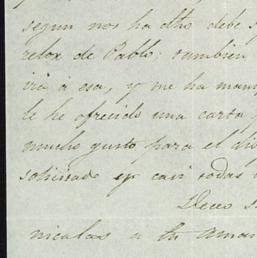 segun nos ha dho debe s
relox de Pablo. tambien
irá a esa, y me ha man
le he ofrecido una carta
mucho gusto para el di
solicitado en casi todas
Deceo s
nicolas a tu aman